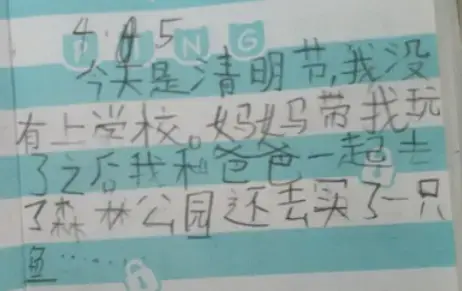 4.5
PING
今天是清明节,我没
有上学校。妈妈带我玩
了之后我和爸爸一起去
了森林公园还去买了一只
鱼……